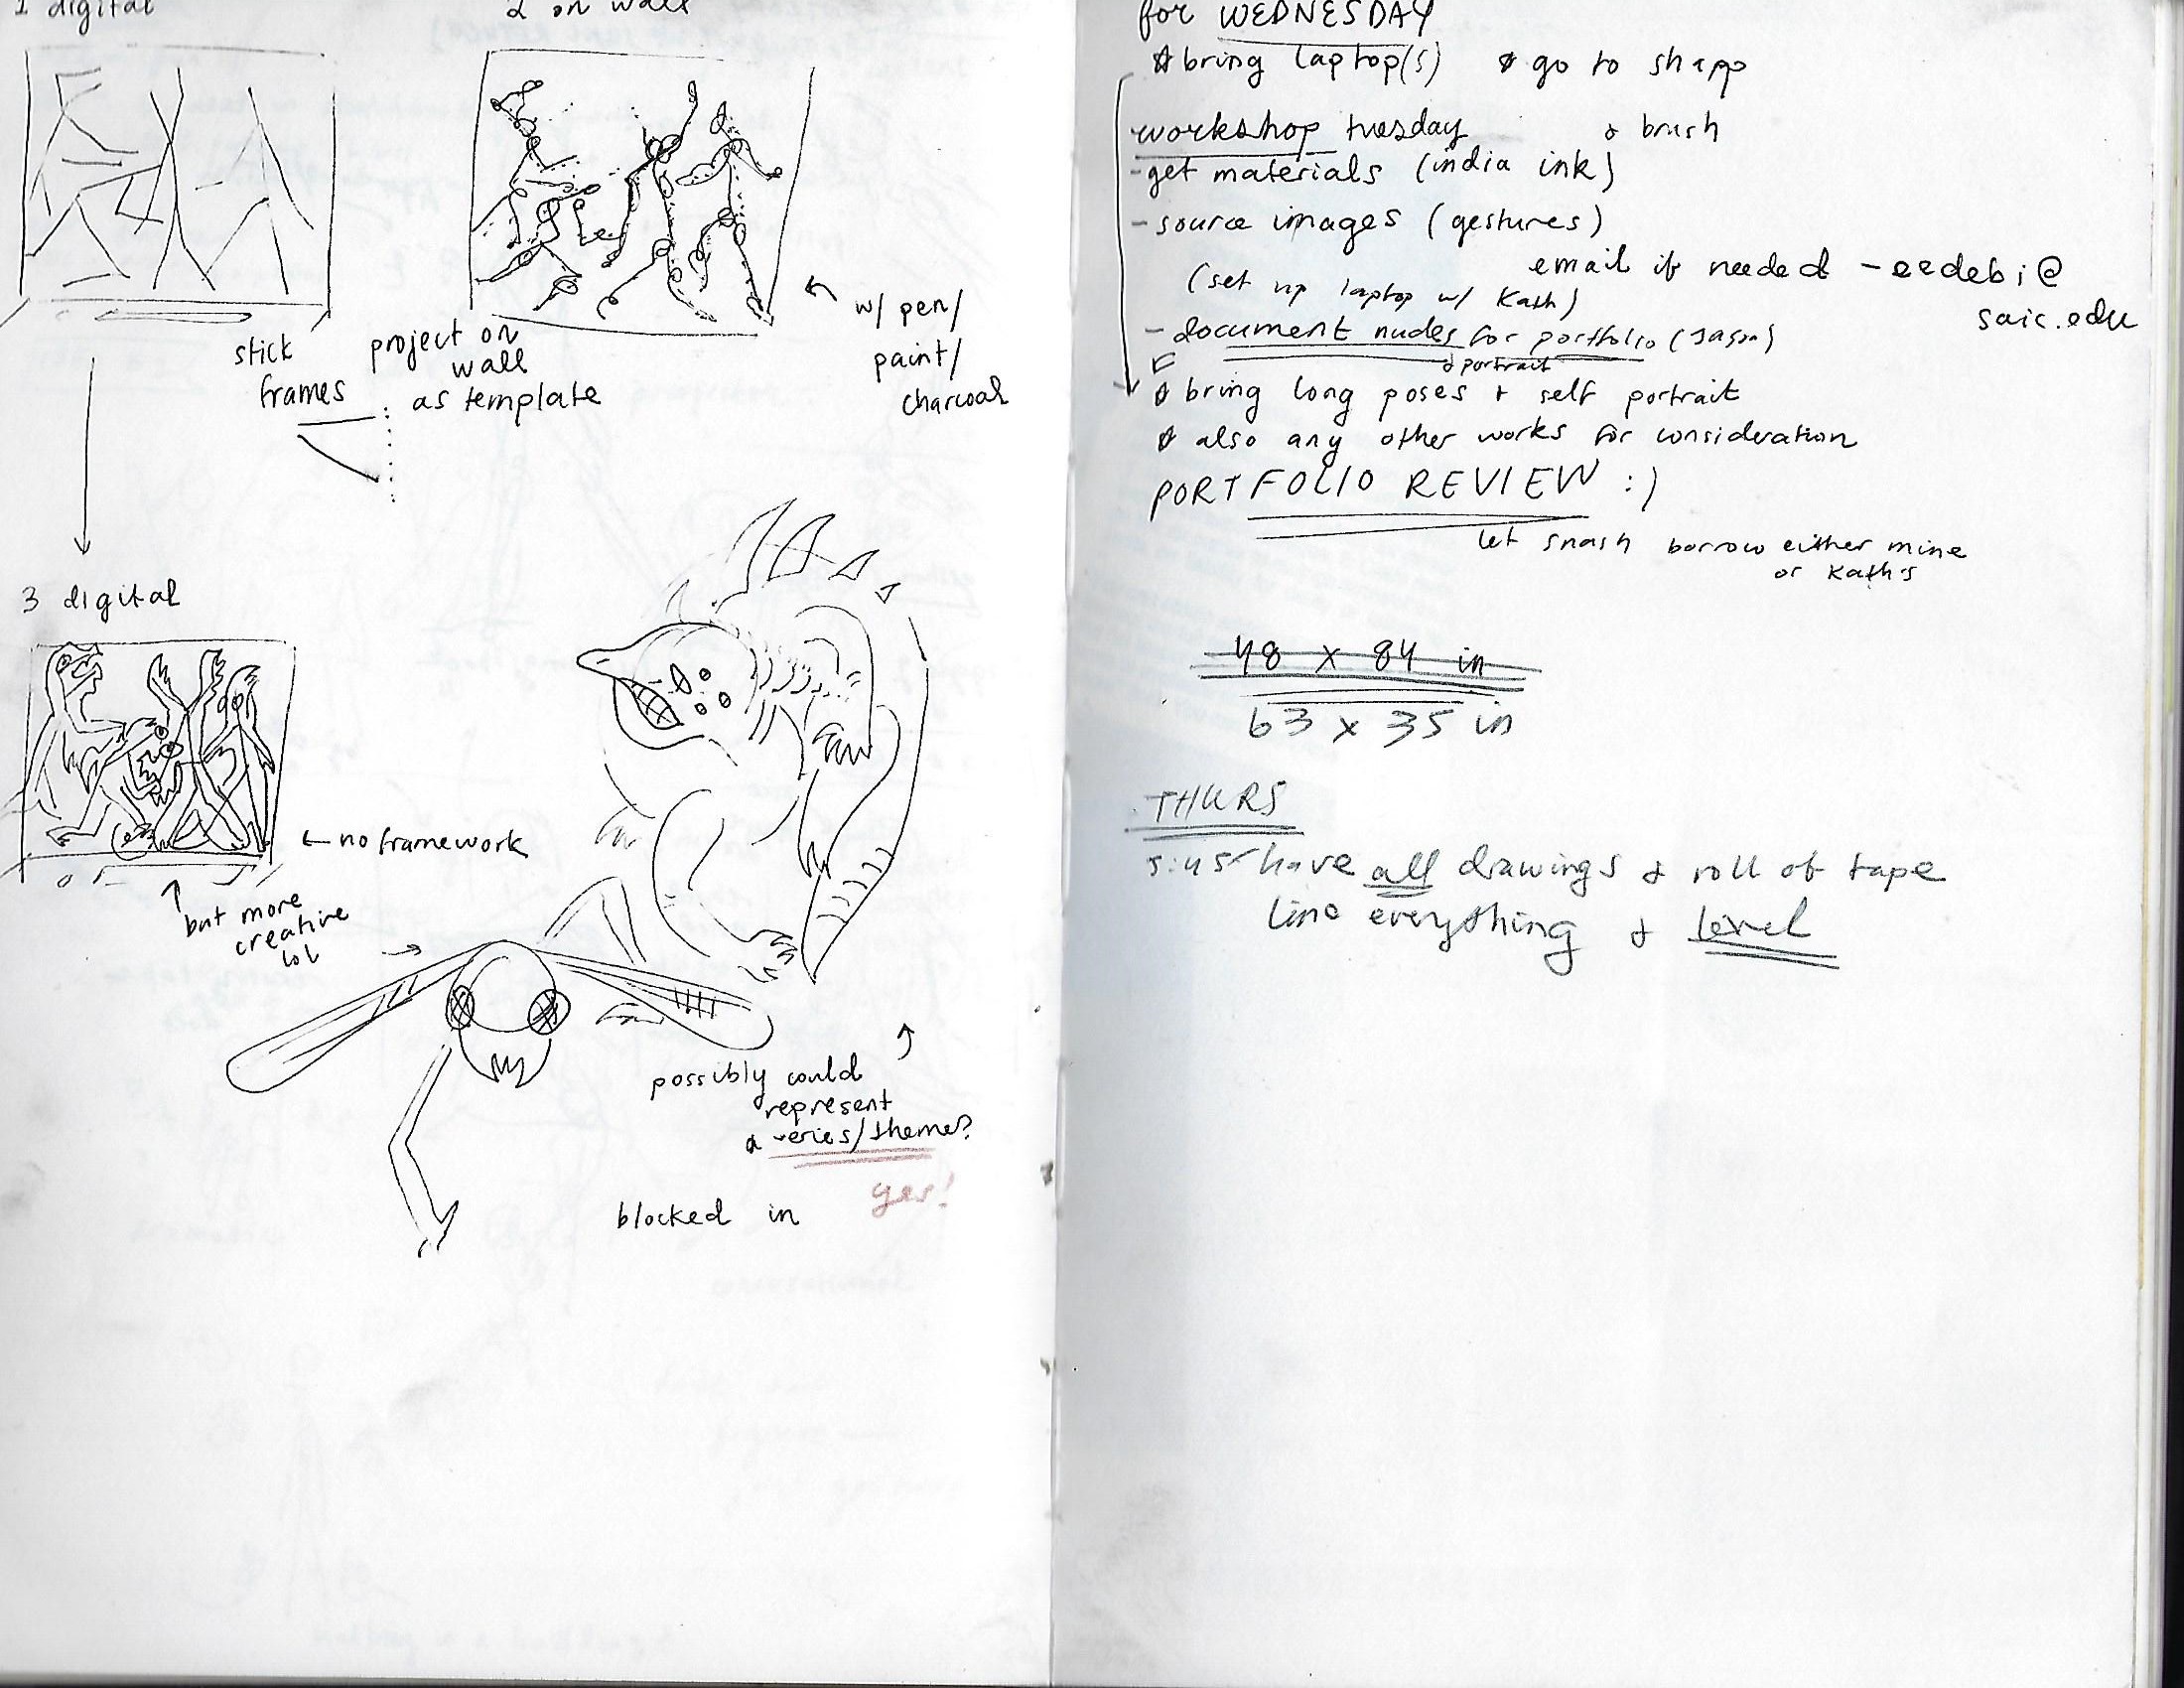 1 digital
2 on wall
stick
frames
project on
wall
as template
w/ pen/
paint/
charcoal
3 digital
←no framework
but more
creative
lol
possibly could
represent
a series/theme?
yes!
blocked in
for WEDNESDAY
bring laptop(s)
go to sharp
workshop tuesday
& brush
-get materials (india ink)
- source images (gestures)
email if needed - eedebi@
saic.edu
(set up laptop w/ Kath)
- document nudes for portfolio (Jason)
& portrait
bring long poses + self portrait
also any other works for consideration
PORTFOLIO REVIEW :)
let snash borrow either mine
or Kath's
48 x 84 in
63 x 35 in
THURS
5:45 have all drawings & roll of tape
line everything & level